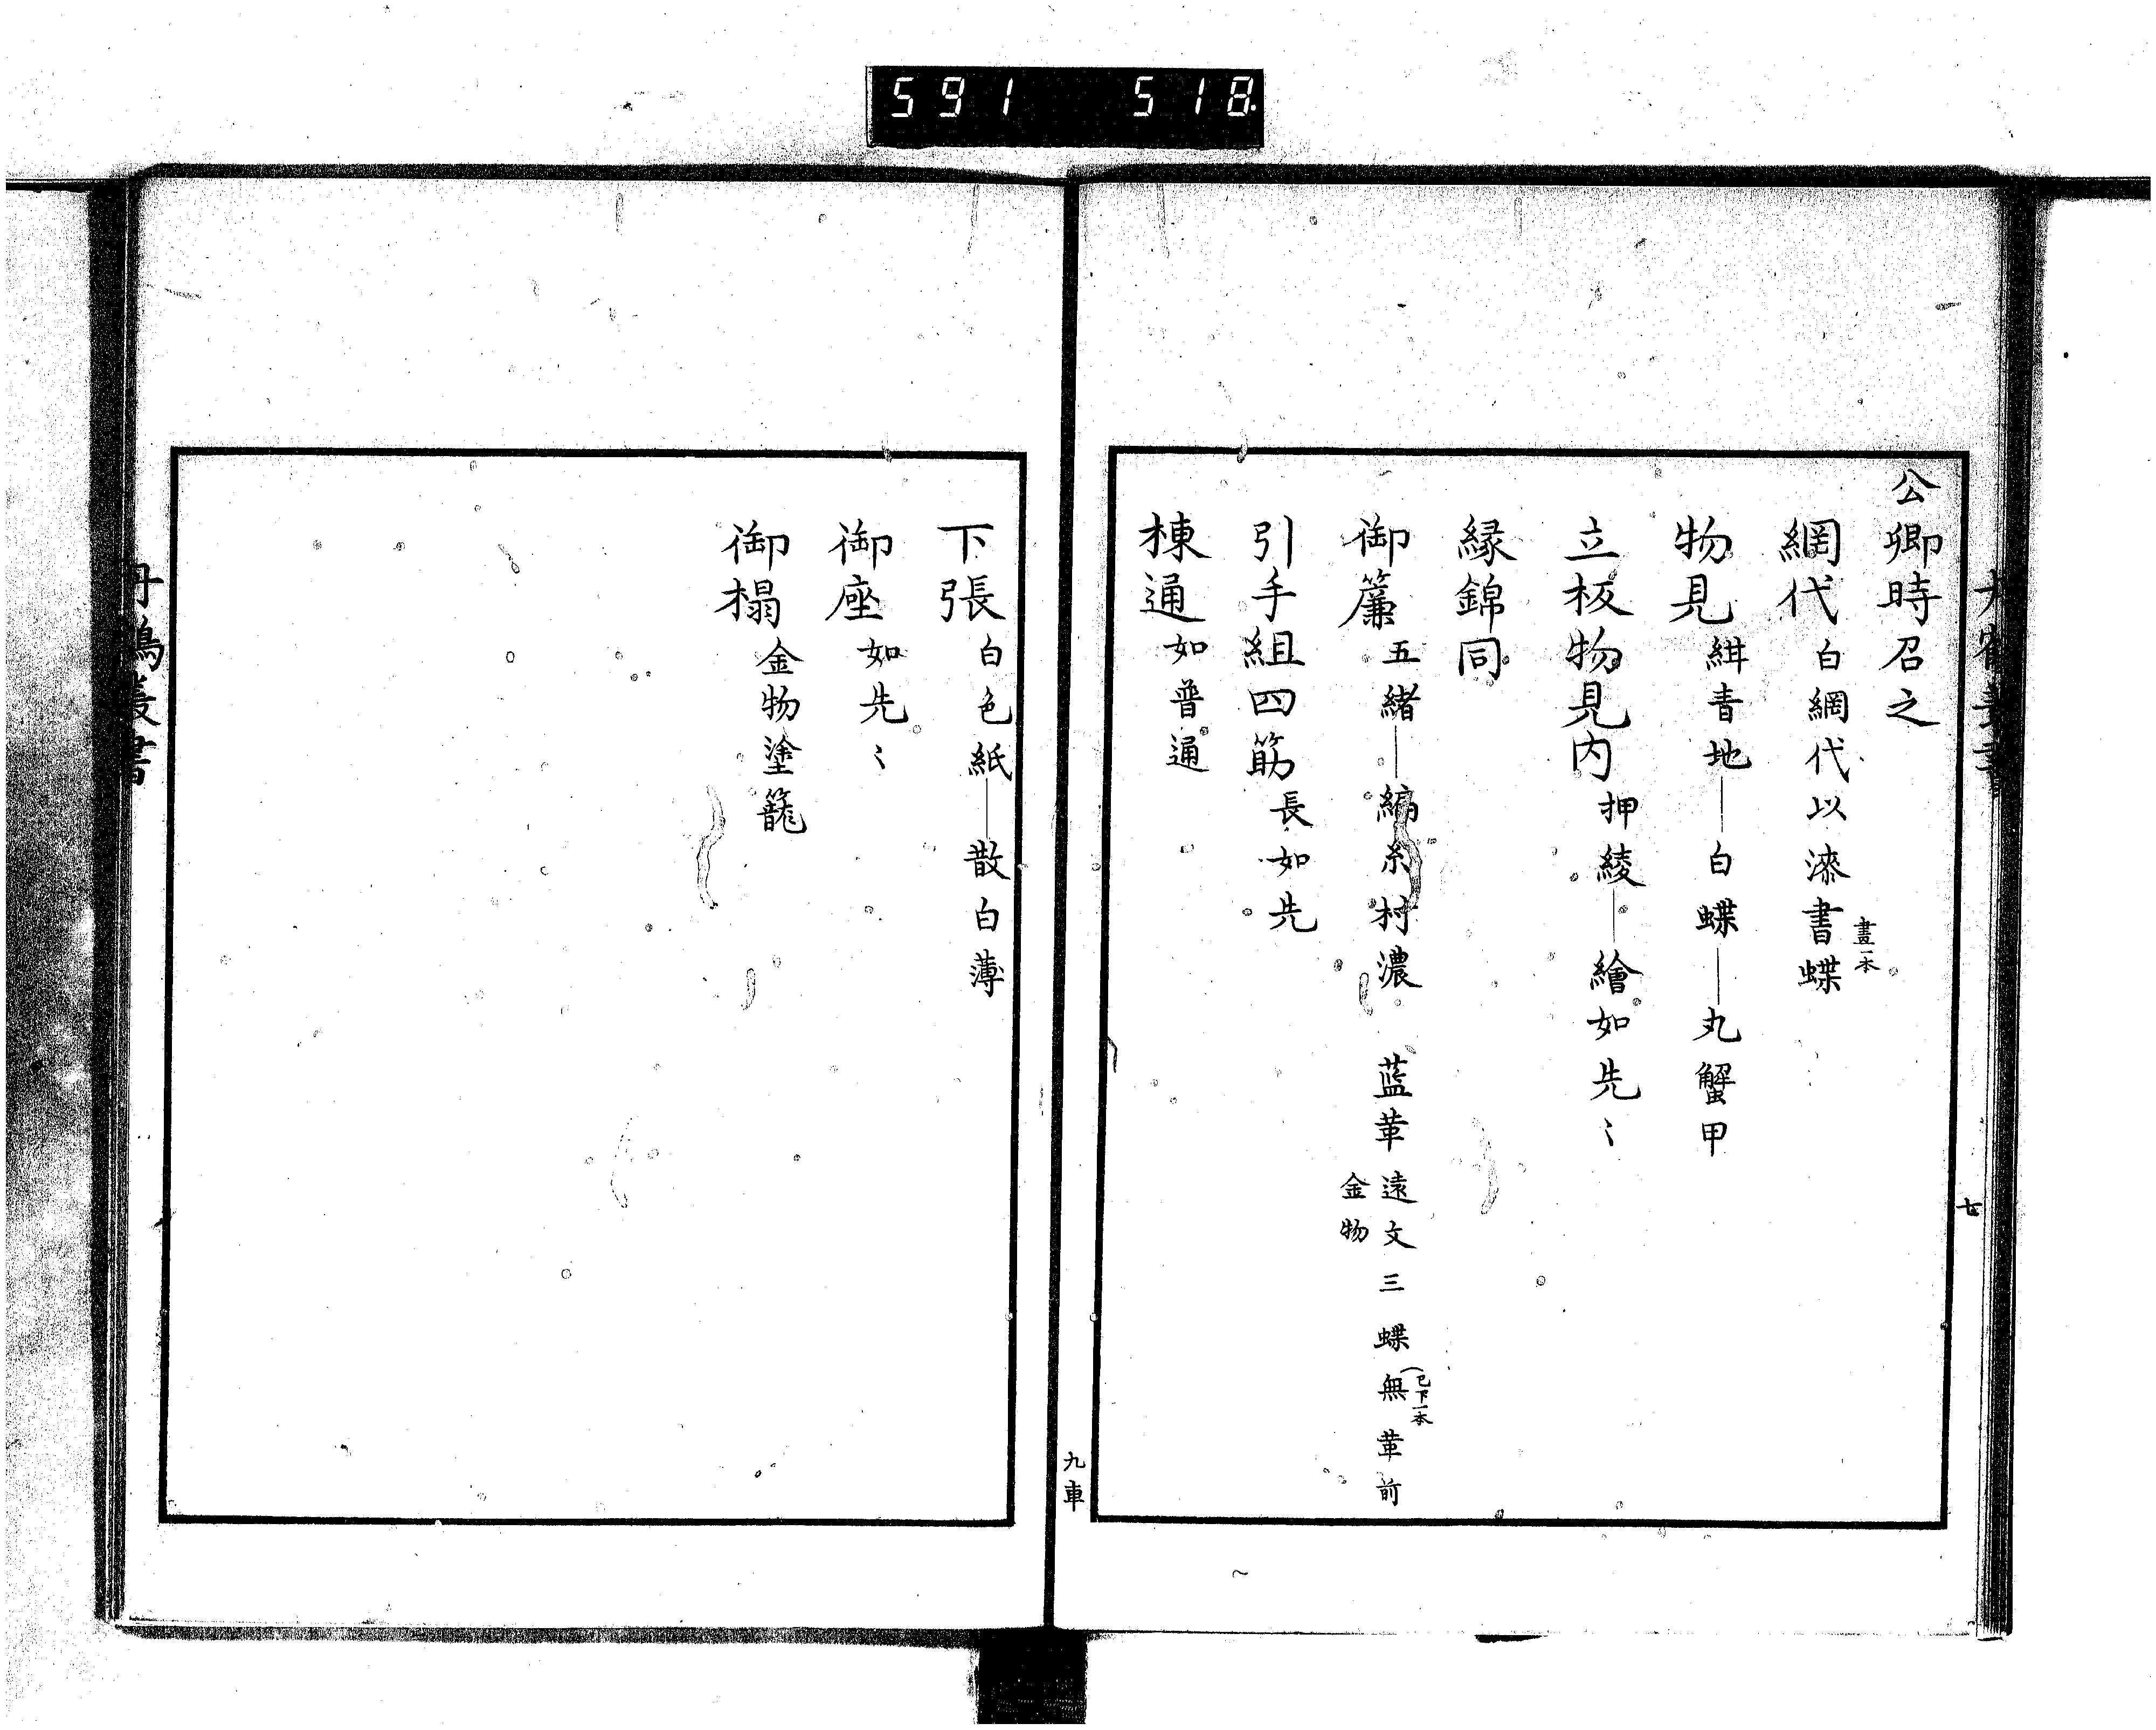 591 518
公卿時召之
網代 白網代以漆書蝶
畫一本
物見 紺青地―白蝶―丸蟹甲
立板物見内 押綾―繪如先〻
縁錦同
御簾 五緒―縮糸村濃 藍革 遠文三蝶無革前
金物
已下一本
引手組四筋 長如先
棟通 如普通
七
九車
下張 白色紙―散白薄
御座 如先〻
御榻 金物塗籠
丹鶴叢書